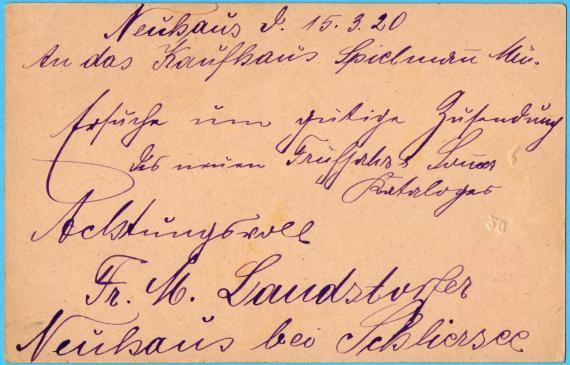 Neuhaus d. 15.3.20
An das Kaufhaus Spielmann Mü.
Ersuche um gütige Zusendung
des neuen Frühjahrs
Kataloges
Achtungsvoll
Fr. M. Landstorfer
Neuhaus bei Schliersee